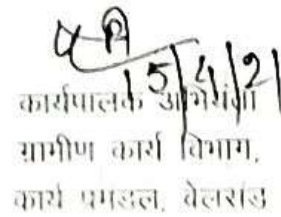 15/4/21
कार्यपालक अभियंता
ग्रामीण कार्य विभाग,
कार्य प्रमंडल, बेलसंड